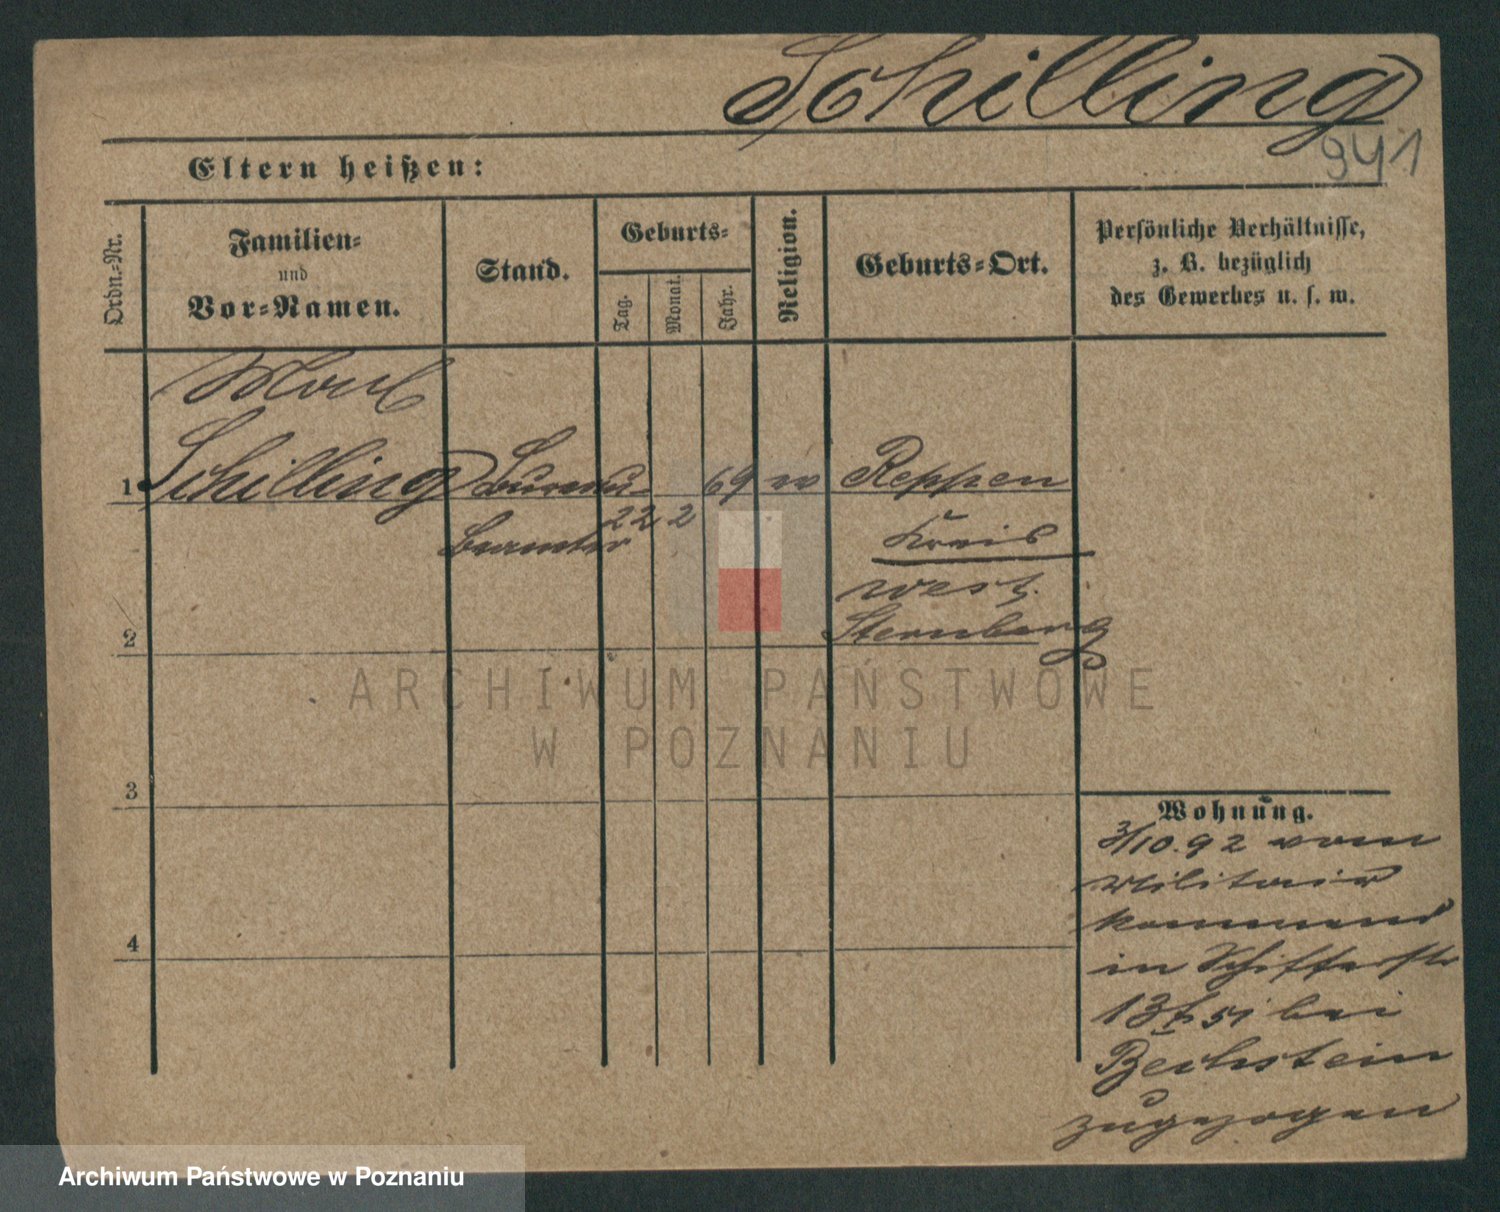 Schilling
941
Eltern heißen:
Ordn.-Nr.
Familien-
und
Vor-Namen.
Stand.
Geburts-
Tag.
Monat.
Jahr.
Religion.
Geburts-Ort.
Persönliche Verhältnisse,
z. B. bezüglich
des Gewerbes u. s. w.
1 Schilling Bureau- 69 Reppen
Beamter 22 2 Kreis
west.
Sternberg
2
3
4
ARCHIWUM PAŃSTWOWE
W POZNANIU
Wohnung.
3/10.92 vom
Militair
kommand
in Schifferstr
13 bei
Bechstein
zugezogen
Archiwum Państwowe w Poznaniu